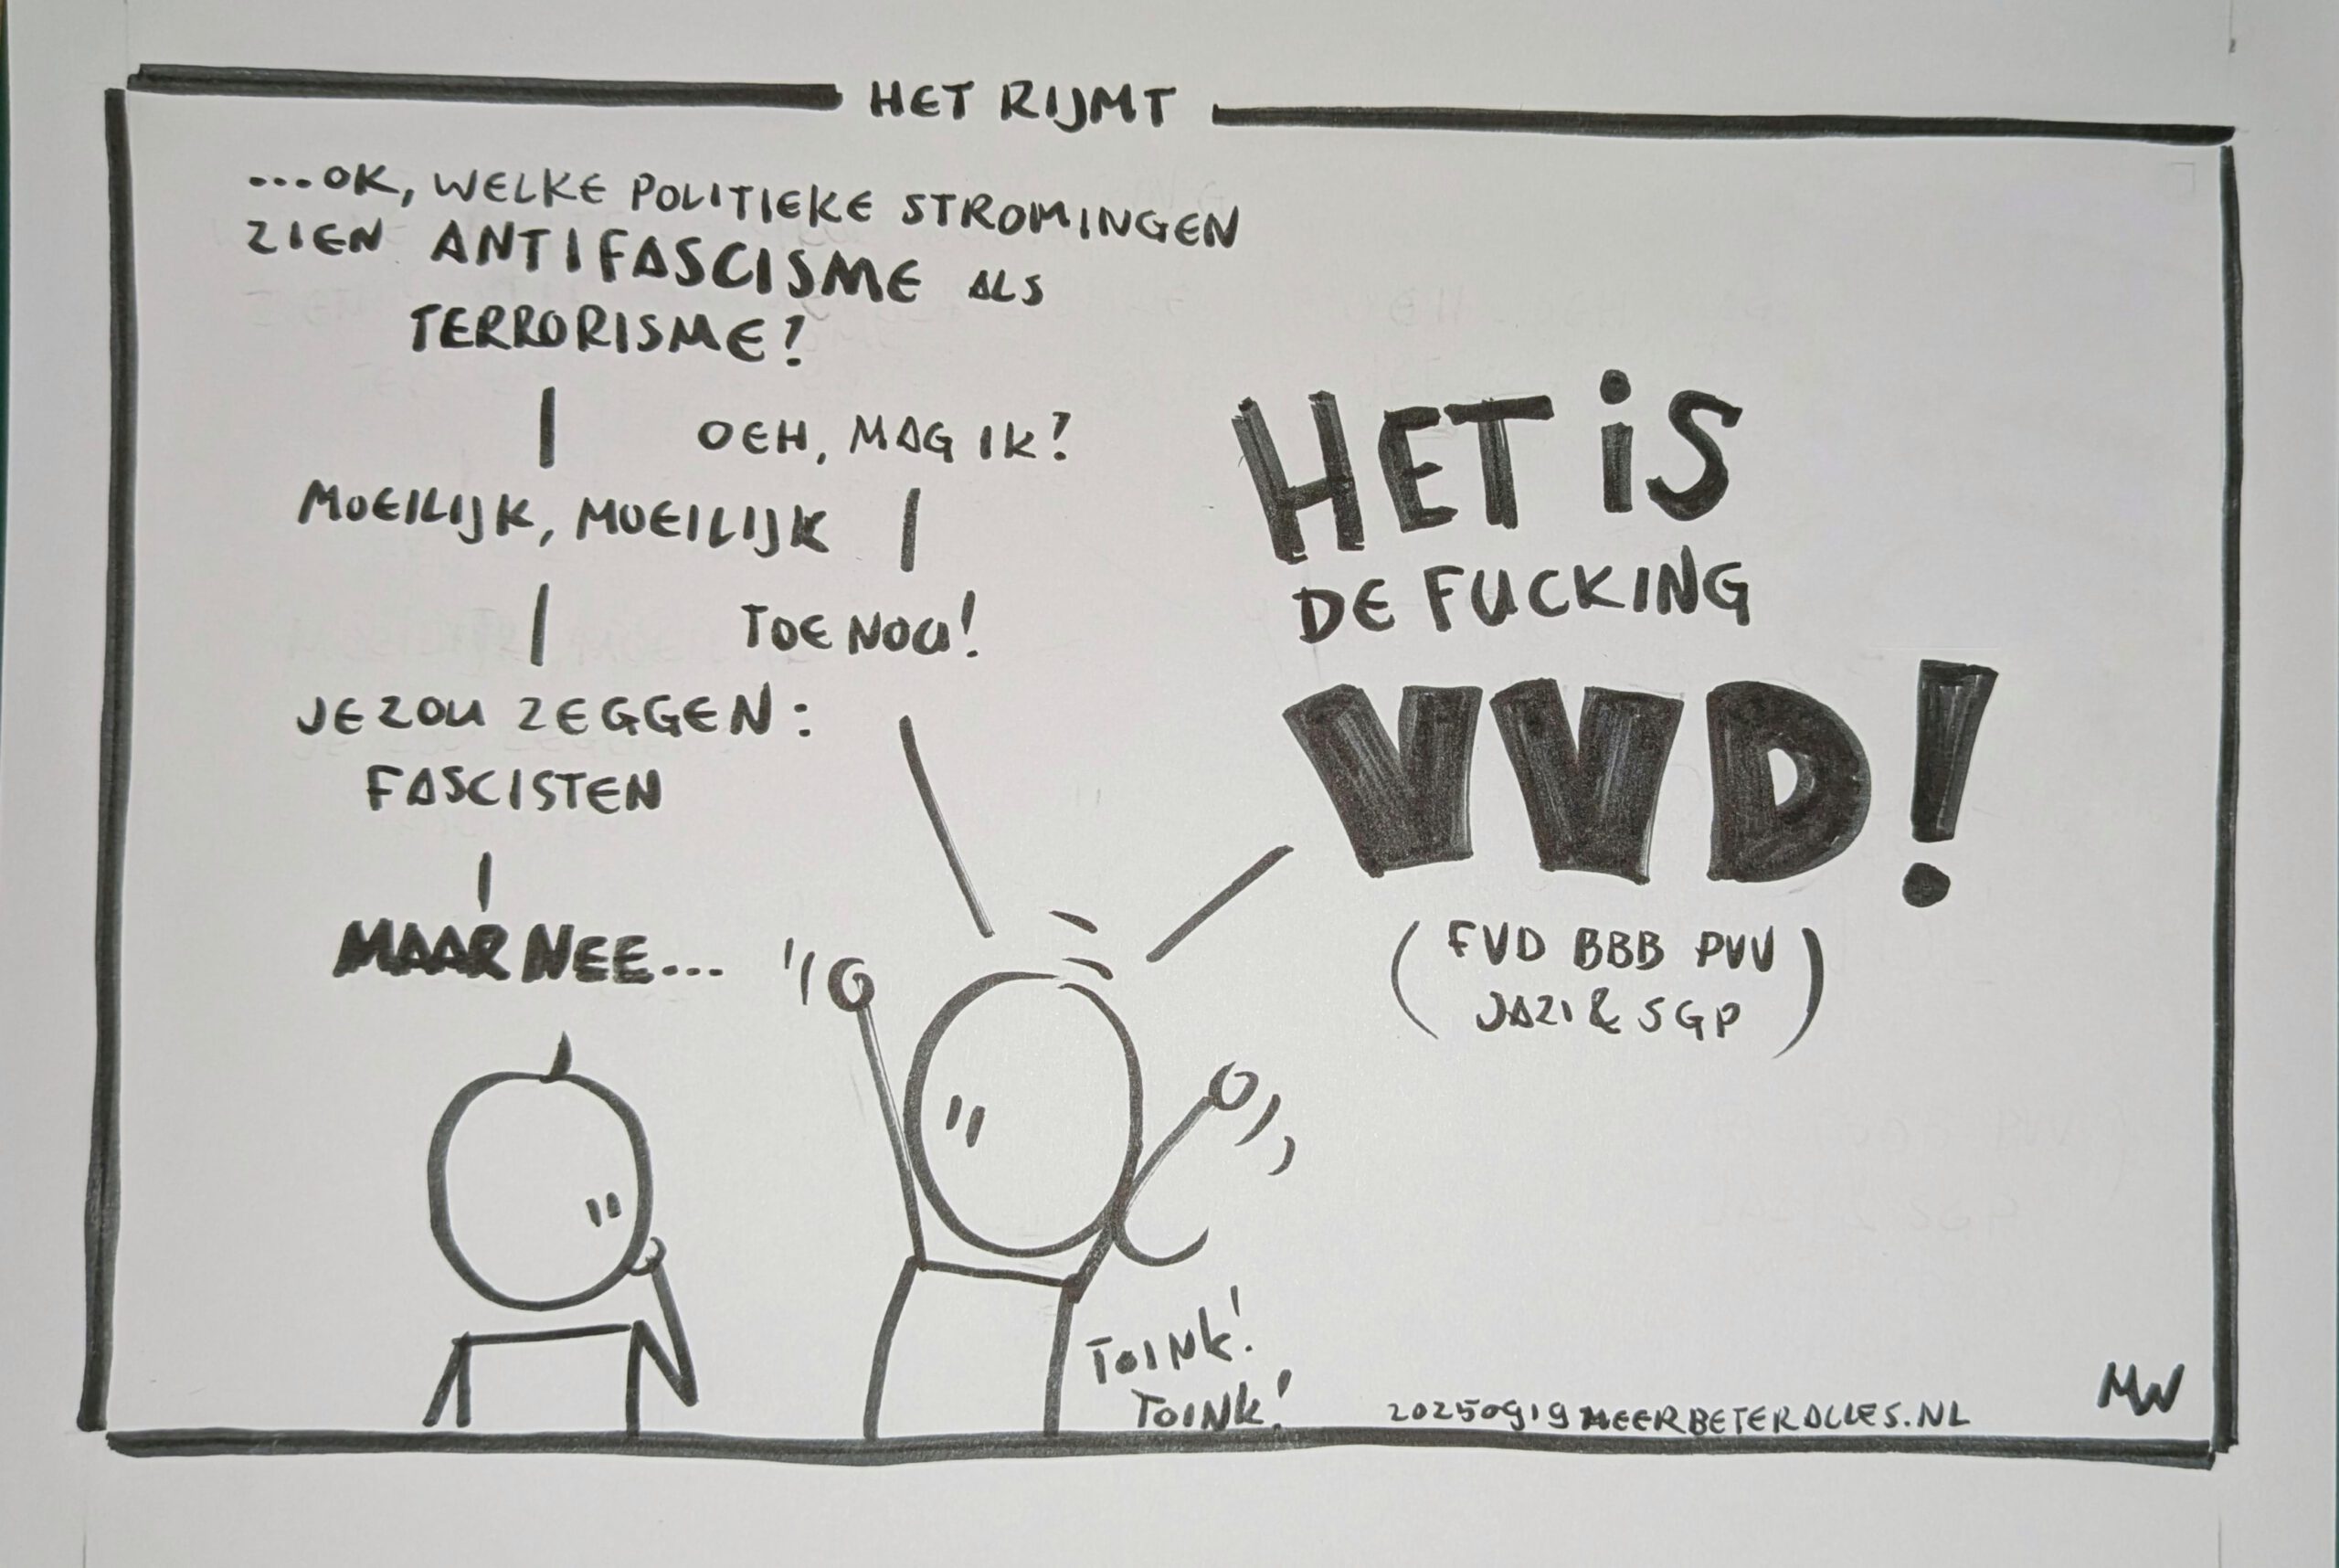 HET RIJMT
...OK, WELKE POLITIEKE STROMINGEN
ZIEN ANTIFASCISME ALS
TERRORISME?
OEH, MAG IK?
MOEILIJK, MOEILIJK
TOE NOU!
JE ZOU ZEGGEN:
FASCISTEN
MAAR NEE...
HET IS
DE FUCKING
VVD!
(FVD BBB PVV
JA21 & SGP)
TOINK!
TOINK!
20250919 MEERBETERALLES.NL
MW